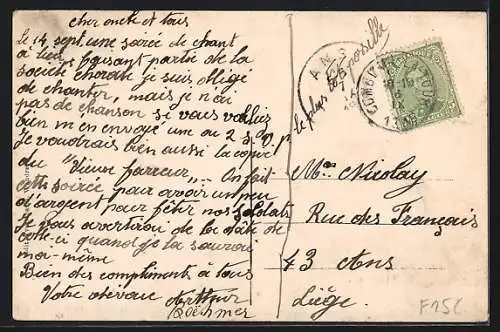 cher oncle et tous
le 14 sept. une soirée de chant
à lieu faisant partie de la
société chorale je suis obligé
de chanter, mais je n'ai
pas de chanson si vous vouliez
bien m'en envoyé une ou 2 s.v.p
Je voudrais bien aussi la copie
du "Vieux farceur" On fait
cette soirée pour avoir un peu
d'argent pour fêter nos soldats
Je vous avertirai de la date de
celle-ci quand je la saurai
moi-même
Bien des compliments à tous
Votre dévoué Arthur
le plus tôt possible
ANS
Mr Nicolay
Rue des Français
43 Ans
Liège.
F25C